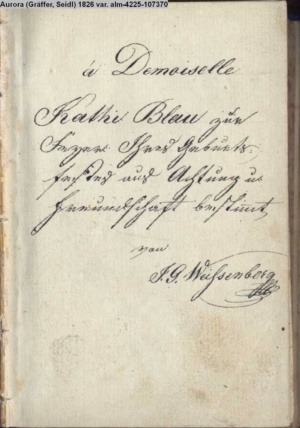 Aurora (Gräffer, Seidl) 1826 var. alm-4225-107370
á Demoiselle
Kathi Blau zur
Feyer Ihres Geburts-
festes aus Achtung u:
Freundschaft bestimt
von
J. G. Weihsenberg